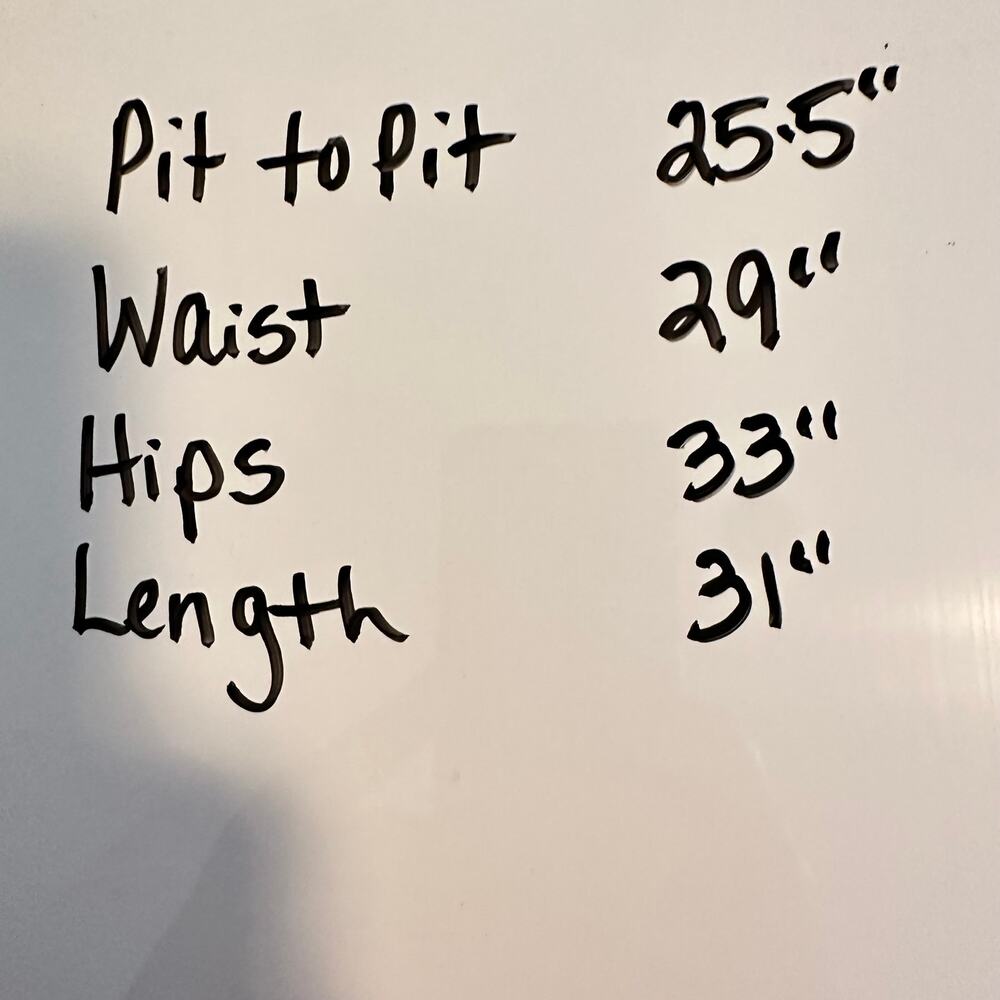 Pit to Pit 25.5"
Waist 29"
Hips 33"
Length 31"